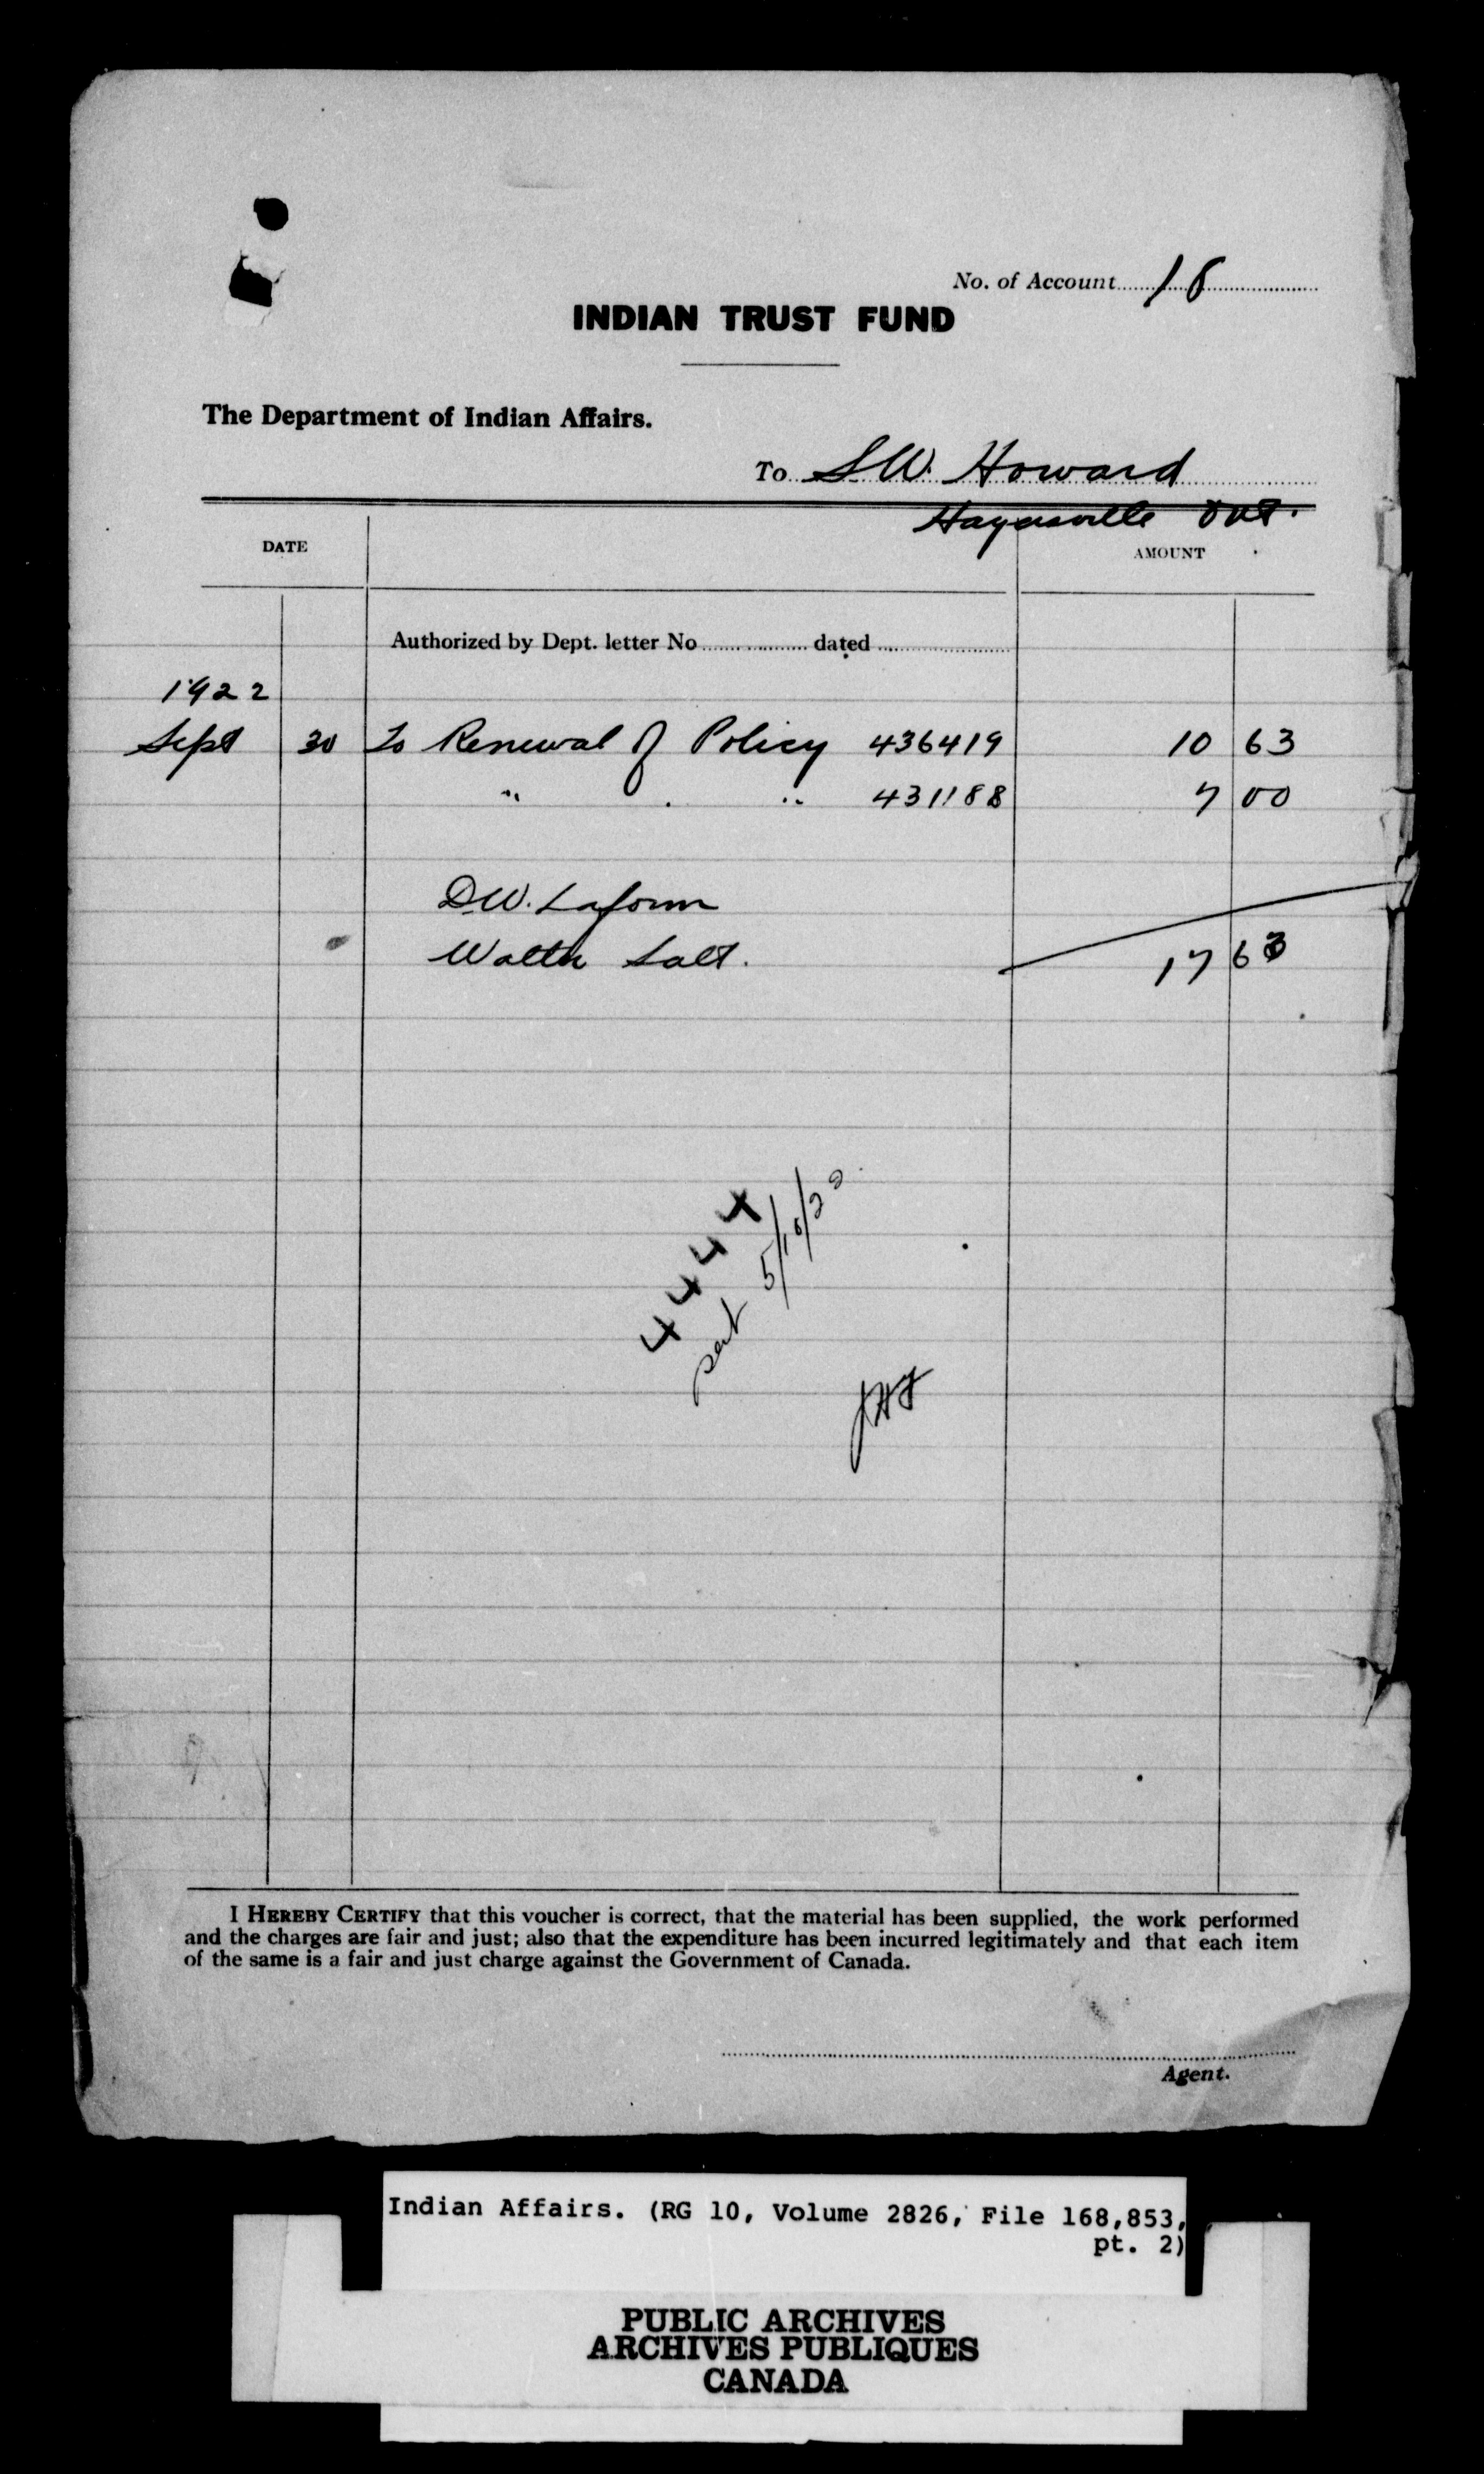 No. of Account 18
INDIAN TRUST FUND
The Department of Indian Affairs.
To S.W. Howard
Hagersville Ont.
DATE AMOUNT
Authorized by Dept. letter No. dated
1922
Sept 30 To Renewal of Policy 436419 10 63
" . " 431188 7 00
D.W. Laform
Walter Salt.
17 63
4444
5/10/22
I HEREBY CERTIFY that this voucher is correct, that the material has been supplied, the work performed
and the charges are fair and just; also that the expenditure has been incurred legitimately and that each item
of the same is a fair and just charge against the Government of Canada.
Agent.
Indian Affairs. (RG 10, Volume 2826, File 168,853,
pt. 2)
PUBLIC ARCHIVES
ARCHIVES PUBLIQUES
CANADA